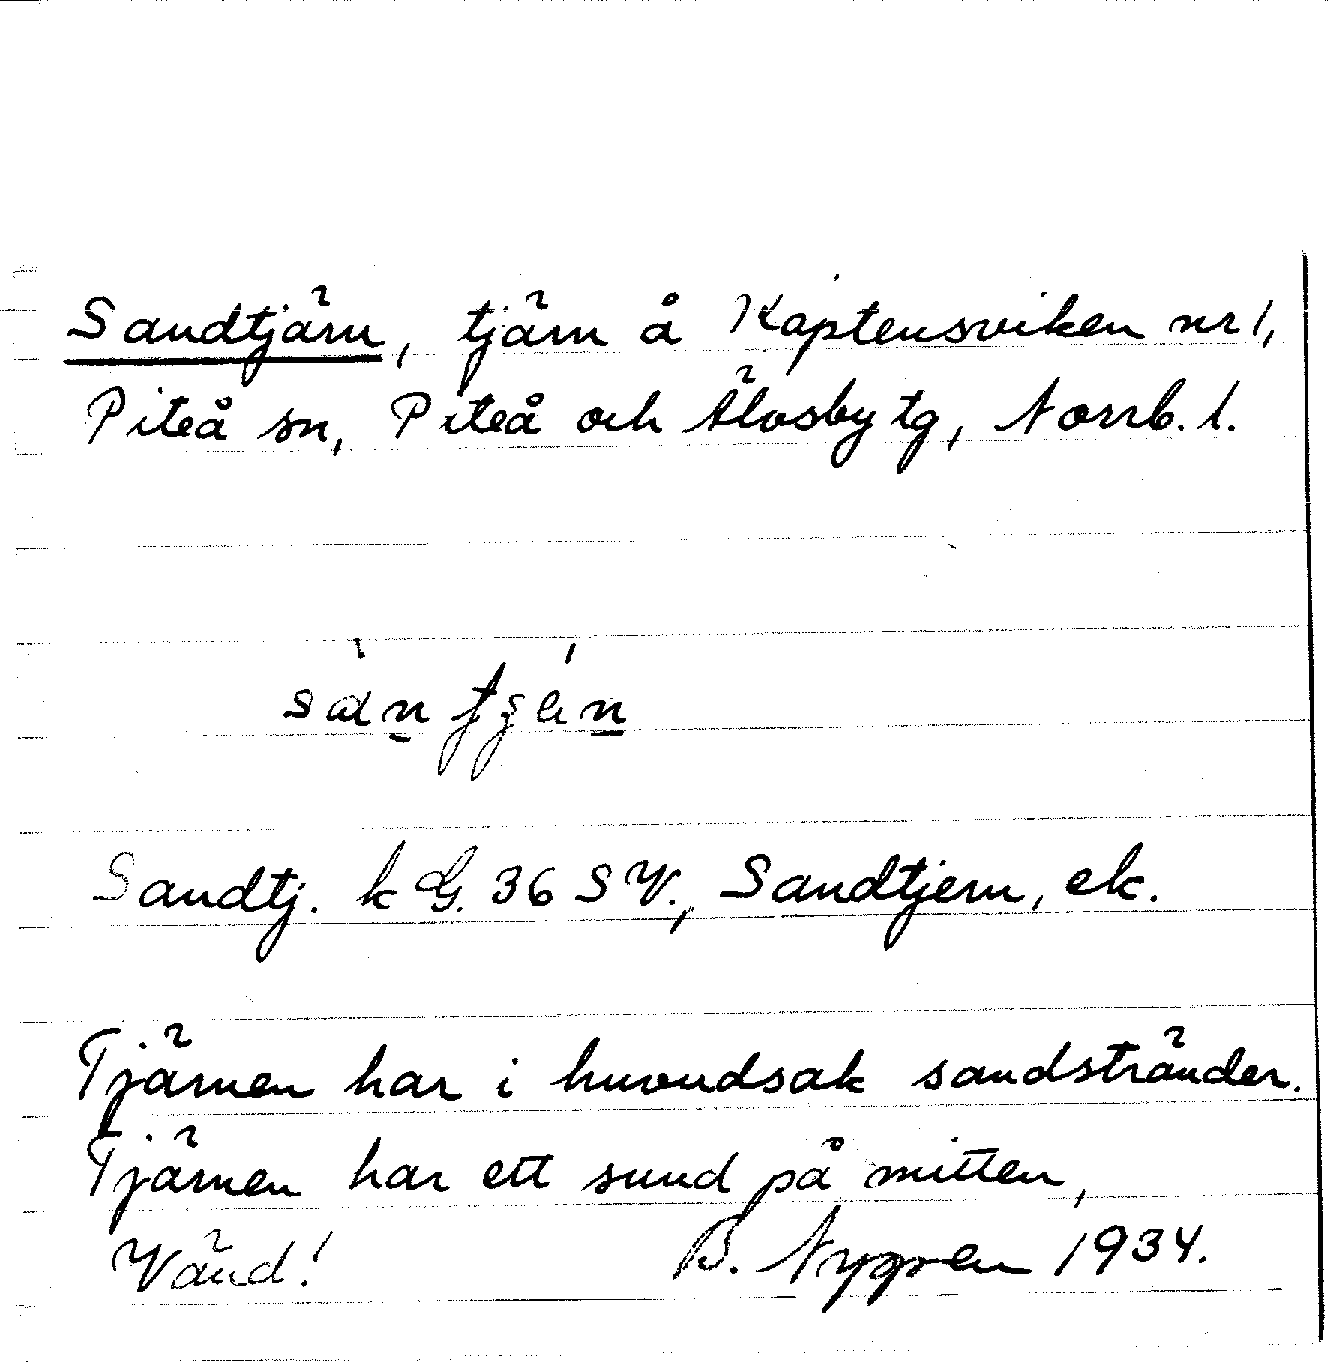 Sandtjärn, tjärn å Kaptensviken nr 1,
Piteå sn, Piteå och Älvsby tg, Norrb. l.
Sandtj. k G. 36 SV., Sandtjern, ek.
Tjärnen har i huvudsak sandstränder.
Tjärnen har ett sund på mitten,
Vänd! B. Nygren 1934.